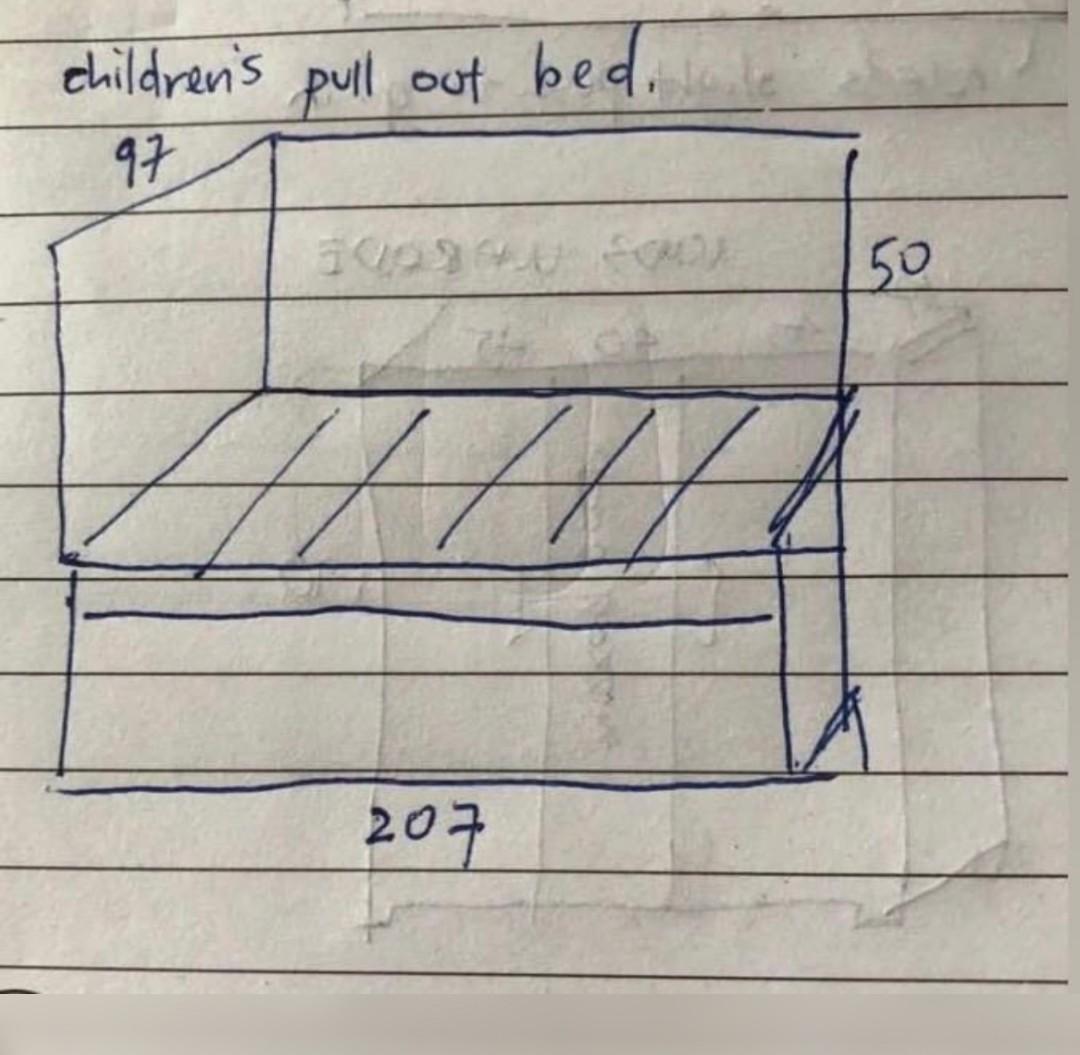 children's pull out bed.
97
50
207